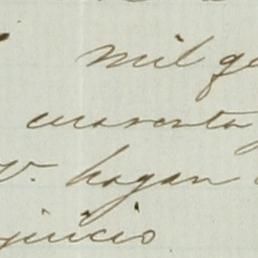 mil
cuarenta
V. hagan
juicio